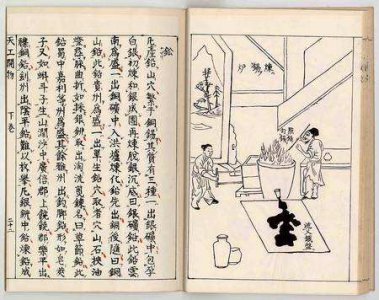 煉錫炉
點鉛勾錫
鉛
凡產鉛山穴繁于銅錫其質有三種一出銀礦中包孕
白銀初煉和銀成團再煉脫銀沉底曰銀礦鉛此鉛雲
南為盛一出銅礦中入洪爐煉化鉛先出銅後隨曰銅
山鉛此鉛貴州為盛一出單生鉛穴取者穴山石挾油
燈尋脉曲折如採銀礦取出淘洗煎鍊名曰草節鉛此
鉛蜀中嘉利等州為盛其餘雅州出釣脚鉛形如皂莢
子又如蝌斗子生山澗沙中廣信郡上饒饒郡樂平出
雜銅鉛劍州出陰平鉛難以枚舉凡銀礦中鉛煉鉛成
天工開物 下卷 二十一